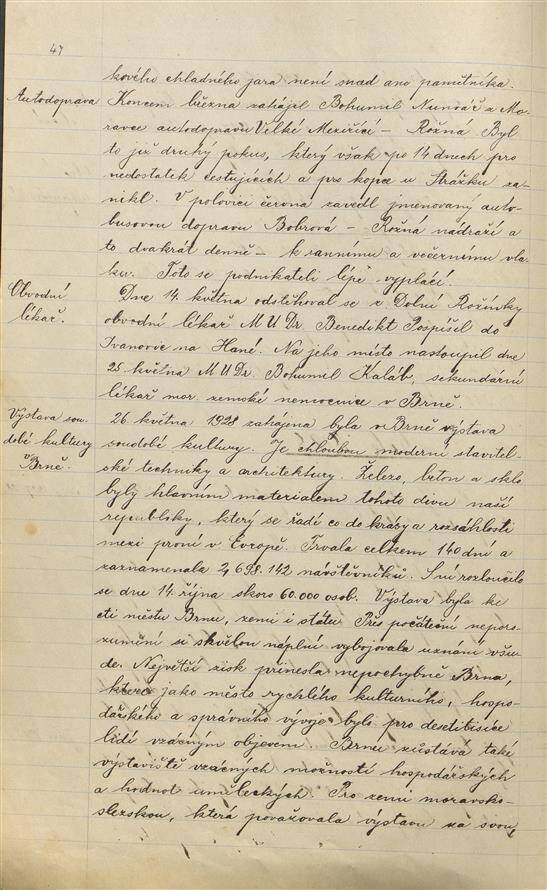 47
kového chladného jara není snad ano pamětníka.
Autodoprava
Koncem března zahájil Bohumil z Mo-
ravce autodopravu Velké Meziříčí – Rožná Byl
to již druhý pokus, který však po 14 dnech pro
nedostatek cestujících a pro kopce u Strážku za-
nikl. V polovici června zavedl jmenovaný auto-
busovou dopravu Bobrová – Rožná nádraží a
to dvakrát denně – k rannímu a večernímu vla-
ku. Toto se podnikateli lépe vyplácí.
Obvodní
lékař.
Dne 14. května odstěhoval se z Dolní Rožínky
obvodní lékař MUDr. Benedikt Pospíšil do
Ivanovic na Hané. Na jeho místo nastoupil dne
25. května MUDr. Bohumil Kaláb, sekundární
lékař mor. zemské nemocnice v Brně.
Výstava sou-
dobé kultury
v Brně.
26. května 1928 zahájena byla v Brně výstava
soudobé kultury. Je chloubou moderní stavitel-
ské techniky a architektury. Železo, beton a sklo
byly hlavním materiálem tohoto divu naší
republiky, který se řadí co do krásy a rozsáhlosti
mezi první v Evropě. Trvala celkem 140 dní a
zaznamenala 2,698.142 návštěvníků. S ní rozloučilo
se dne 14. října skoro 60.000 osob. Výstava byla ke
cti městu Brnu, zemi i státu. Přes počáteční neporo-
zumění si skvělou náplní vybojovala uznání všu-
de. Největší zisk přinesla nepochybně Brnu,
které jako město rychlého kulturního, hospo-
dářského a správního vývoje bylo pro desetitisíce
lidí vzácným objevem. Brnu zůstává také
výstaviště vzácných možností hospodářských
a hodnot uměleckých. Pro zemi moravsko-
slezskou, která považovala výstavu za svou,